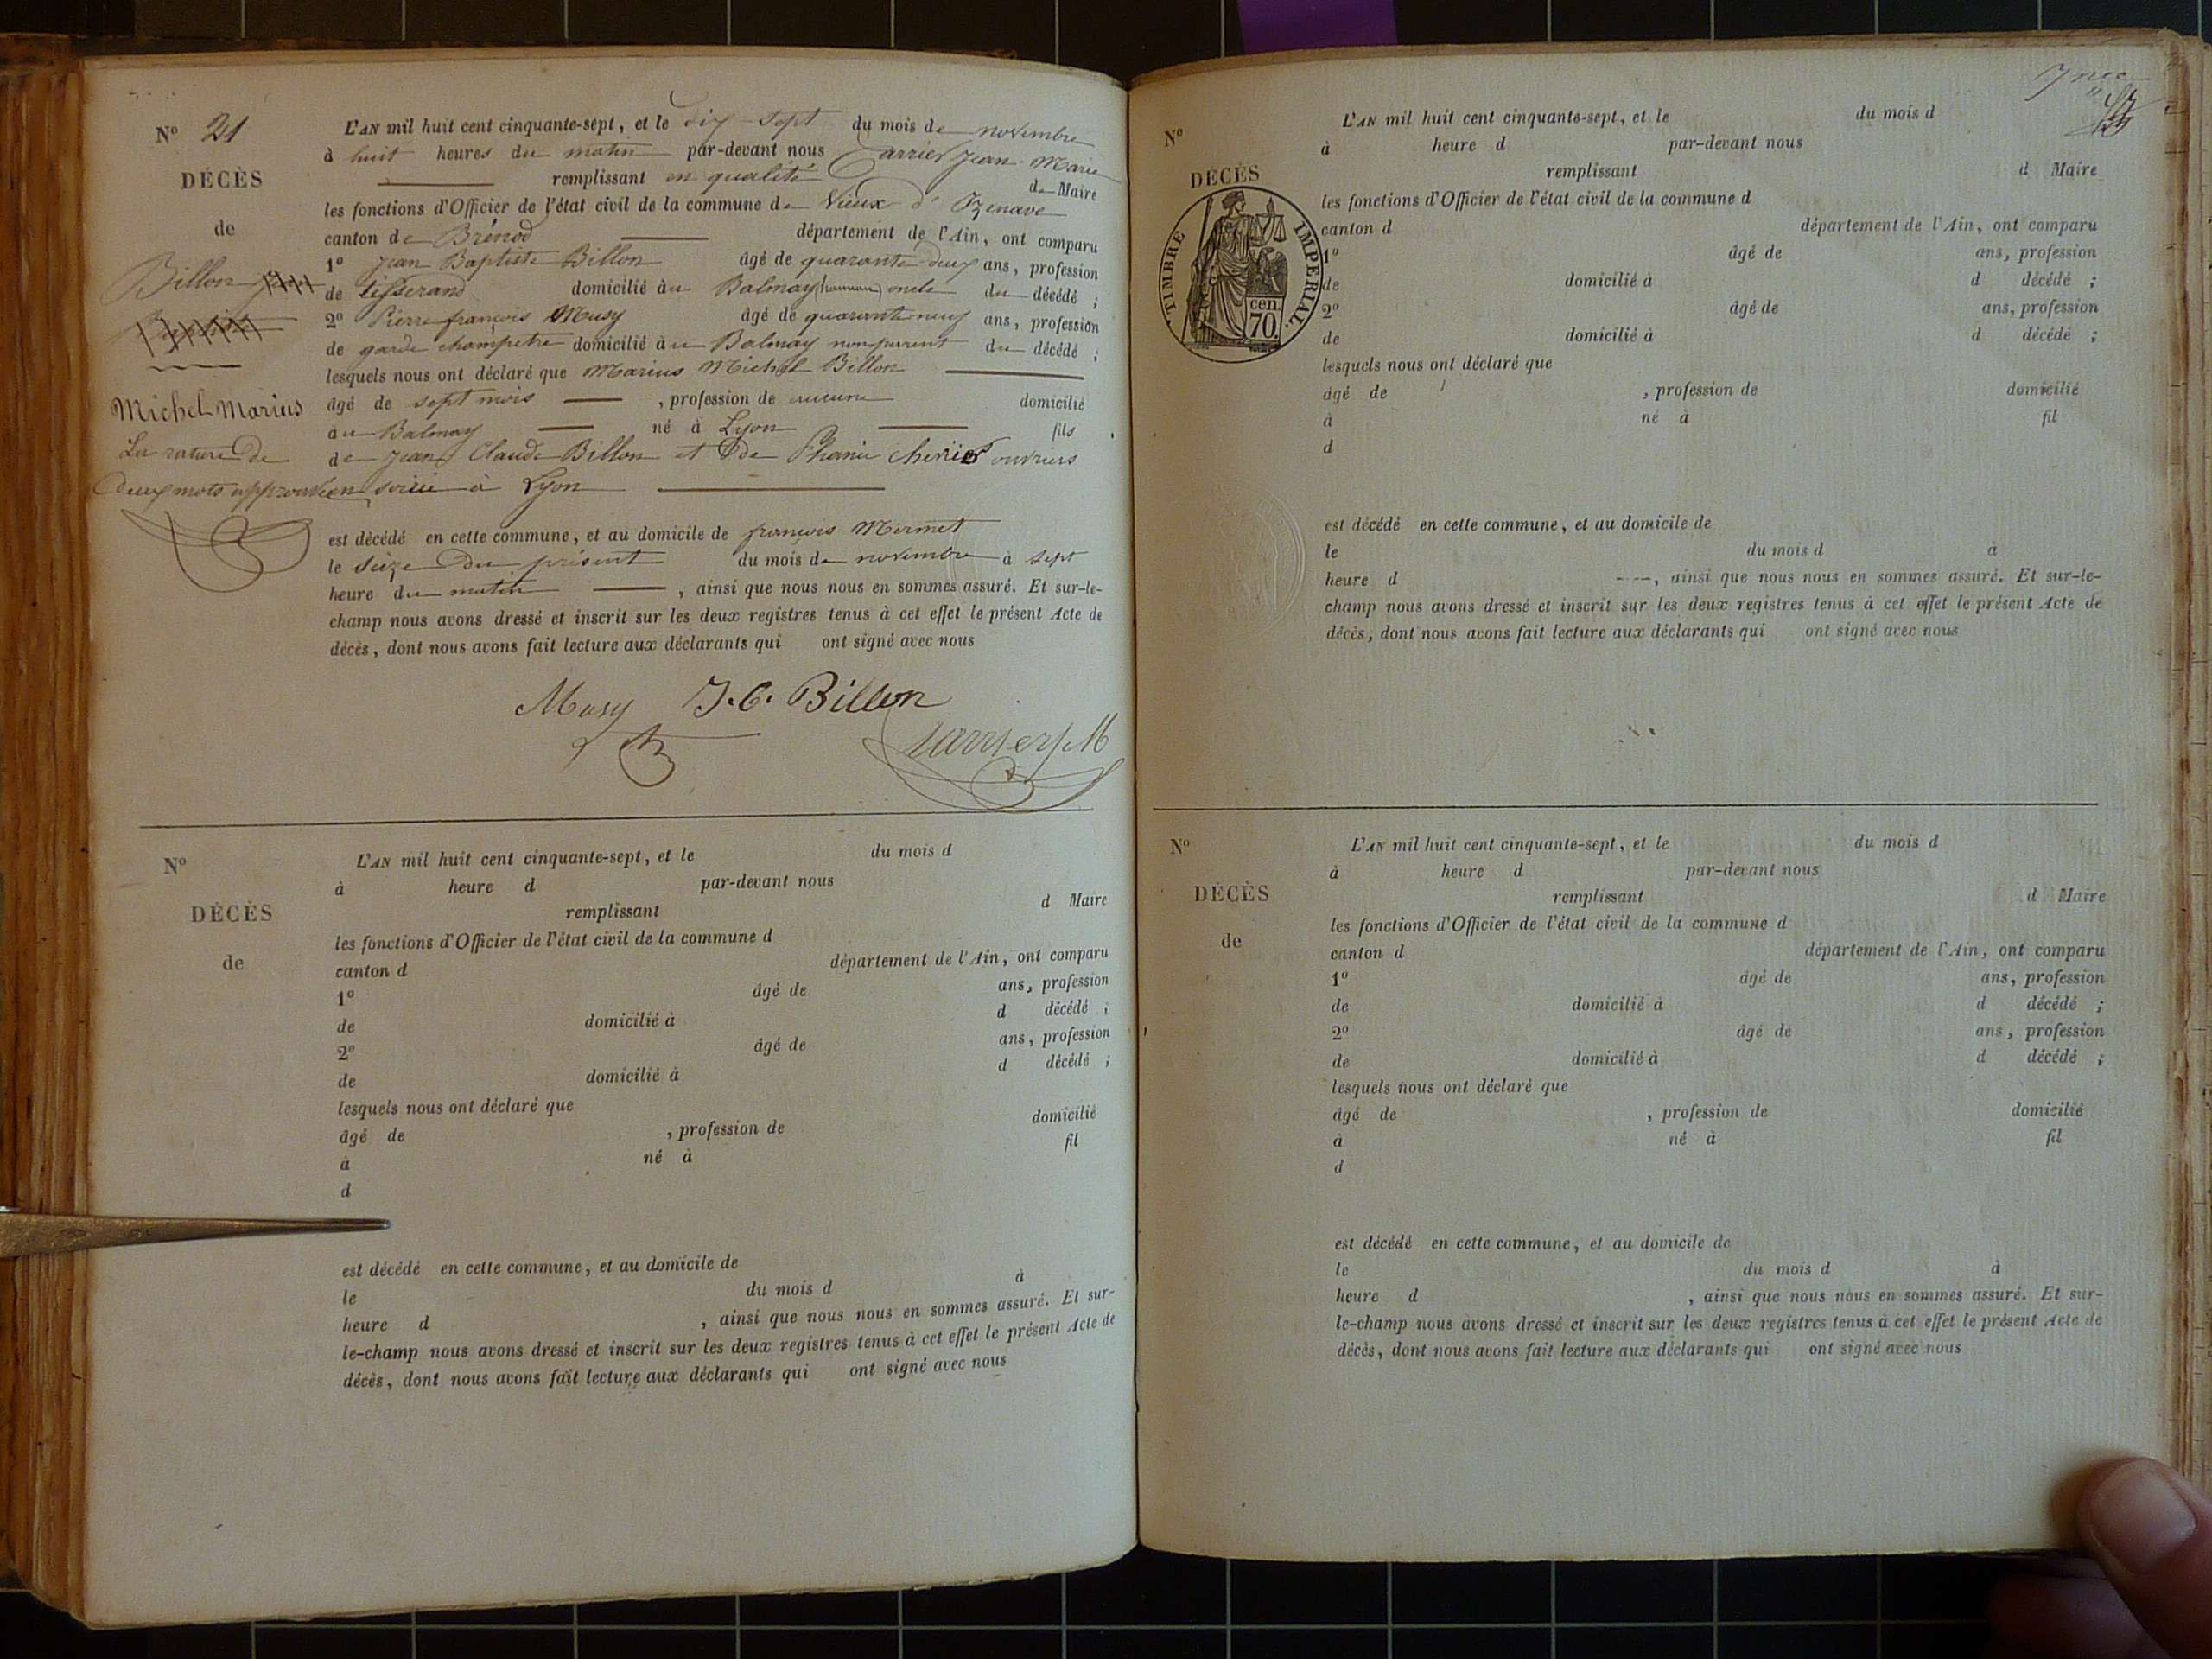 N° 21
DÉCÈS
de
Billon
Michel Marius
La rature de
deux mots approuvée
L'AN mil huit cent cinquante-sept, et le dix-sept du mois de novembre
à huit heures du matin par-devant nous Carrier Jean-Marie
remplissant en qualité de Maire
les fonctions d'Officier de l'état civil de la commune de Vieux d'Izenave
canton de Brénod département de l'Ain, ont comparu
1° Jean Baptiste Billon âgé de quarante deux ans, profession
de tisserand domicilié au Balmay (hameau) oncle du décédé ;
2° Pierre françois Musy âgé de quarante neuf ans, profession
de garde champetre domicilié au Balmay non parent du décédé ;
lesquels nous ont déclaré que Marius Michel Billon
âgé de sept mois , profession de aucune domicilié
au Balmay né à Lyon fils
de Jean Claude Billon et de Phanie ouvriers
en soirie à Lyon
est décédé en cette commune, et au domicile de françois Mermet
le seize du présent du mois de novembre à sept
heure du matin , ainsi que nous nous en sommes assuré. Et sur-le-
champ nous avons dressé et inscrit sur les deux registres tenus à cet effet le présent Acte de
décès, dont nous avons fait lecture aux déclarants qui ont signé avec nous
Musy J.B. Billon
Carrier J M
N°
DÉCÈS
de
L'AN mil huit cent cinquante-sept, et le du mois d
à heure d par-devant nous
remplissant d Maire
les fonctions d'Officier de l'état civil de la commune d
canton d département de l'Ain, ont comparu
1° âgé de ans, profession
de domicilié à d décédé ;
2° âgé de ans, profession
de domicilié à d décédé ;
lesquels nous ont déclaré que
âgé de , profession de domicilié
à né à fil
d
est décédé en cette commune, et au domicile de
le du mois d à
heure d , ainsi que nous nous en sommes assuré. Et sur-
le-champ nous avons dressé et inscrit sur les deux registres tenus à cet effet le présent Acte de
décès, dont nous avons fait lecture aux déclarants qui ont signé avec nous
N°
DÉCÈS
TIMBRE IMPERIAL.
cen.
70.
L'AN mil huit cent cinquante-sept, et le du mois d
à heure d par-devant nous
remplissant d Maire
les fonctions d'Officier de l'état civil de la commune d
canton d département de l'Ain, ont comparu
1° âgé de ans, profession
de domicilié à d décédé ;
2° âgé de ans, profession
de domicilié à d décédé ;
lesquels nous ont déclaré que
âgé de , profession de domicilié
à né à fil
d
est décédé en cette commune, et au domicile de
le du mois d à
heure d , ainsi que nous nous en sommes assuré. Et sur-le-
champ nous avons dressé et inscrit sur les deux registres tenus à cet effet le présent Acte de
décès, dont nous avons fait lecture aux déclarants qui ont signé avec nous
N°
DÉCÈS
de
L'AN mil huit cent cinquante-sept, et le du mois d
à heure d par-devant nous
remplissant d Maire
les fonctions d'Officier de l'état civil de la commune d
canton d département de l'Ain, ont comparu
1° âgé de ans, profession
de domicilié à d décédé ;
2° âgé de ans, profession
de domicilié à d décédé ;
lesquels nous ont déclaré que
âgé de , profession de domicilié
à né à fil
d
est décédé en cette commune, et au domicile de
le du mois d à
heure d , ainsi que nous nous en sommes assuré. Et sur-
le-champ nous avons dressé et inscrit sur les deux registres tenus à cet effet le présent Acte de
décès, dont nous avons fait lecture aux déclarants qui ont signé avec nous